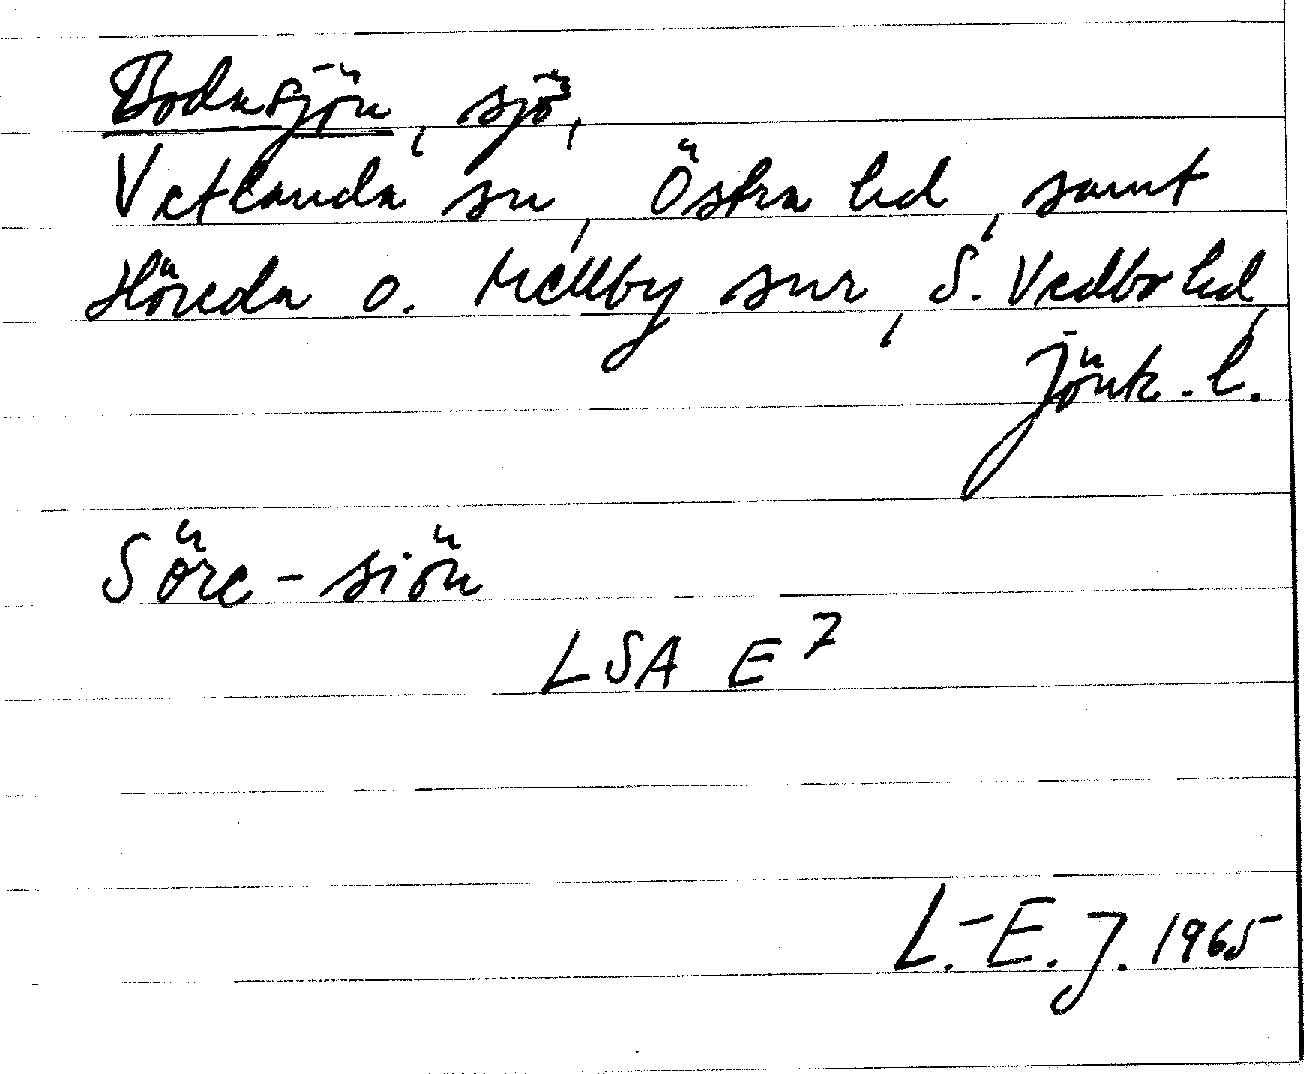 Bodasjön, sjö,
Vetlanda sn, Östra hd, samt
Höreda o. Mellby snr, S. Vedbo hd,
Jönk. l.
Söre-siön
LSA E7
L.-E. J. 1965